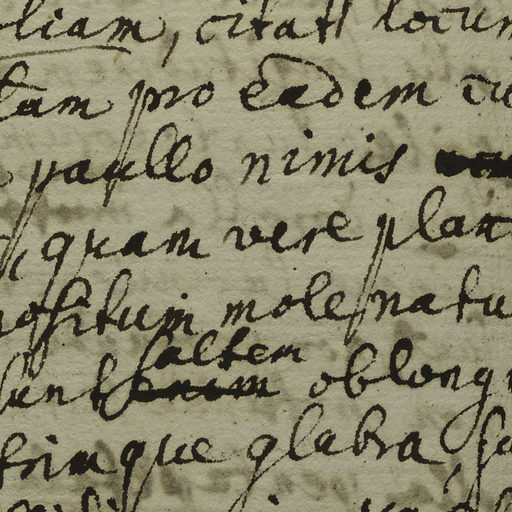 liam, citat locum
tam pro eadem
paullo nimis
quam vere plan
positum mole natu
saltem
sunt enim oblong
trinque glabra,